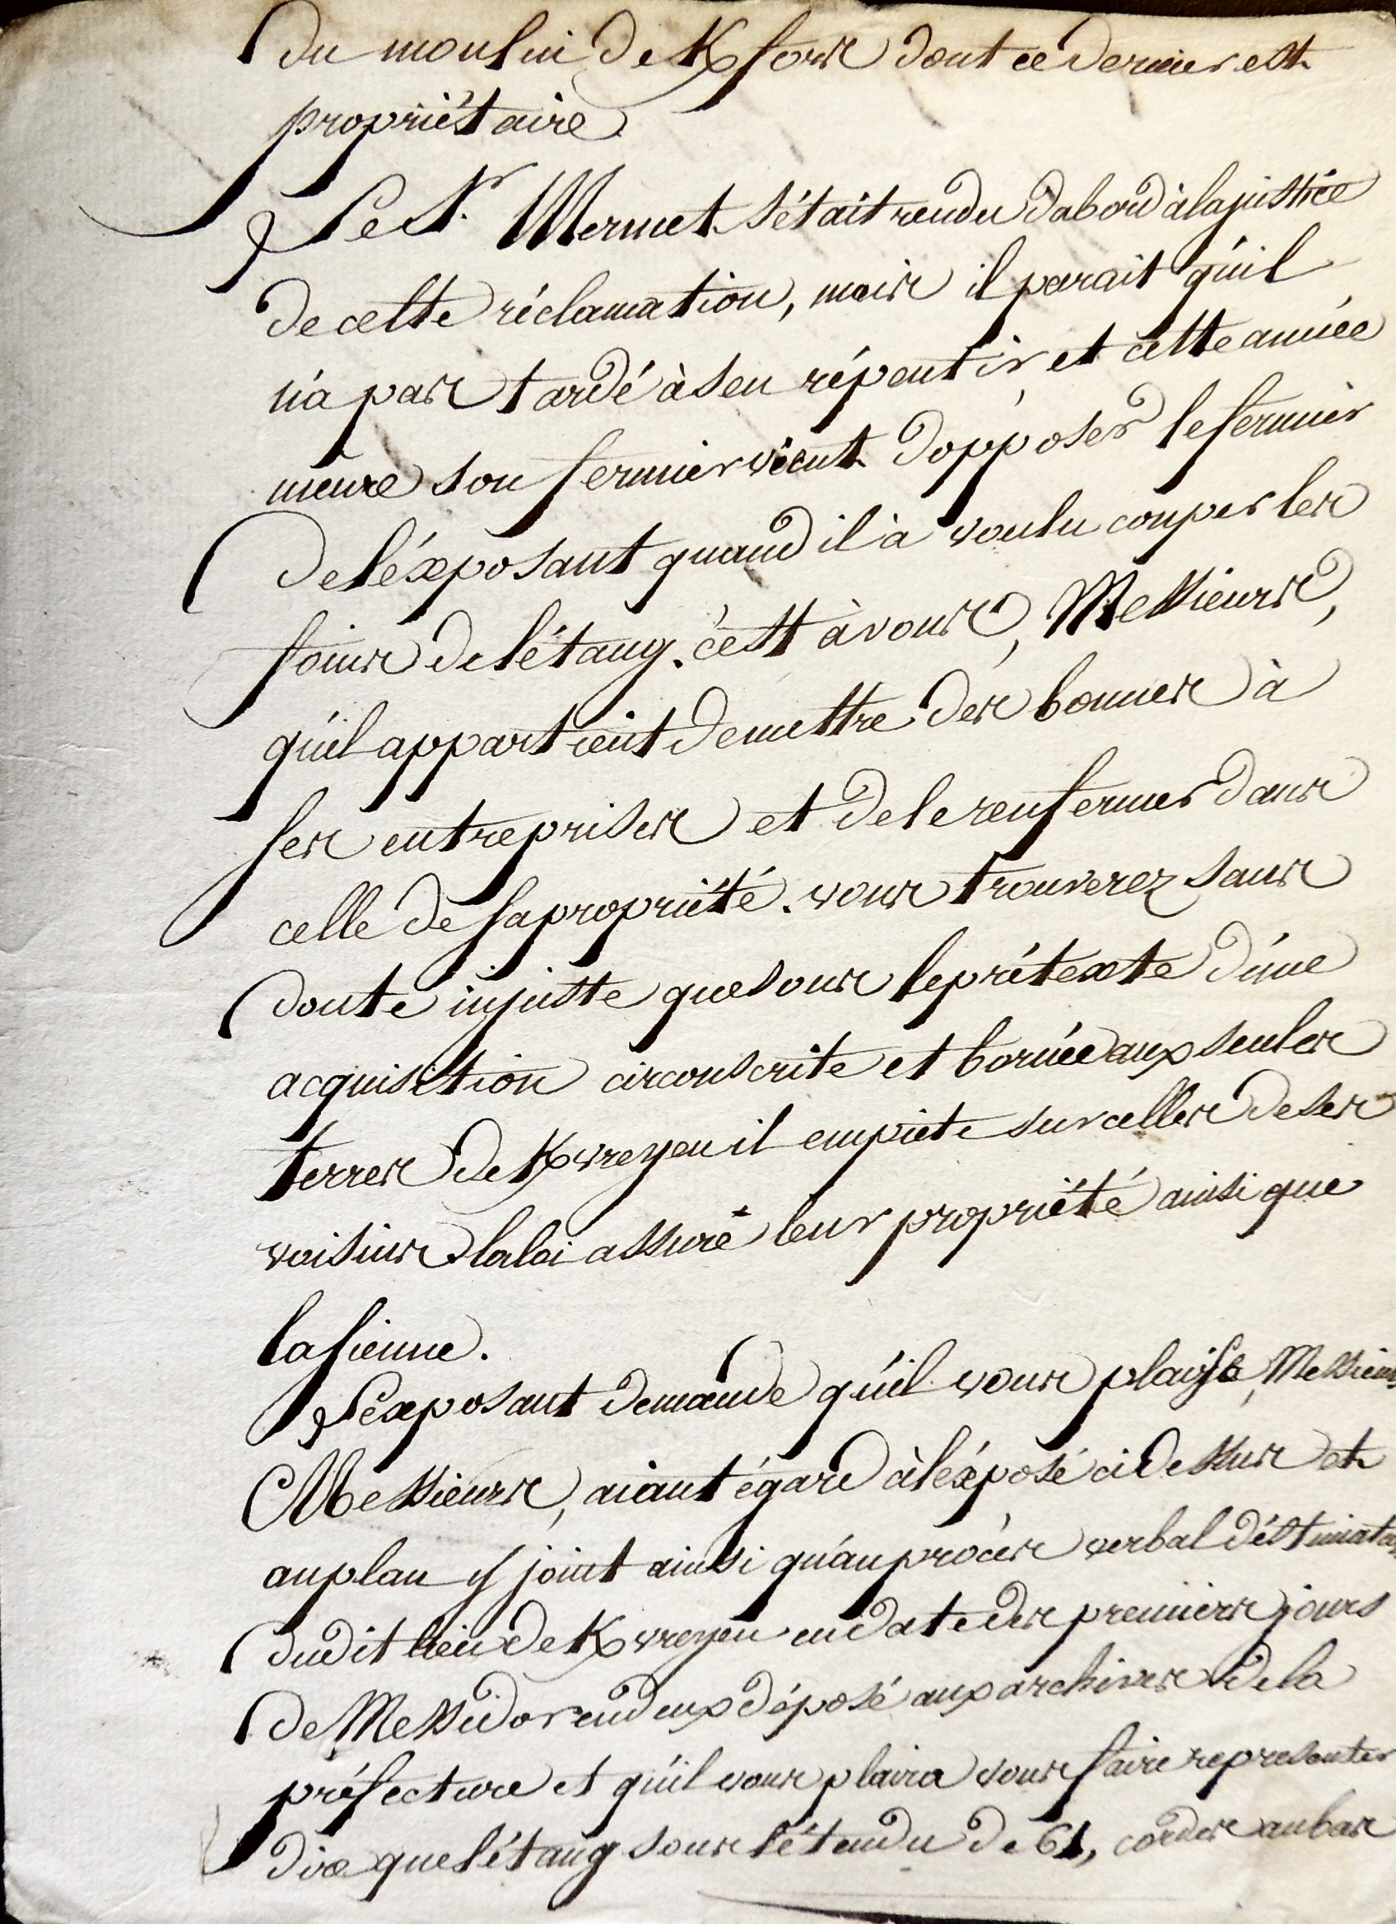 du moulin de Kfors dont ce dernier est
propriétaire
Le Sr. Mermet s'était rendu d'abord à la justice
de cette réclamation, mais il parait qu'il
n'a pas tardé à s'en répentir et cette année
même son fermier vient d'opposer le fermier
de l'éxposant quand il à voulu couper les
foins de l'étang. c'est à vous, Messieurs,
qu'il appartient de mettre des bornes à
ses entreprises et de le renfermer dans
celle de sa propriété. vous trouverez sans
doute injuste que sous le prétexte d'une
acquisition circonscrite et bornée aux seules
terres de Kvreyen il empiete sur celles de ses
voisins la loi assure leur propriété ainsi que
la sienne.
L'exposant demande qu'il vous plaise, Messieurs
Messieurs, aiant égard à l'éxposé ci dessus et
au plan y joint ainsi qu'au procès verbal d'éstimation
dudit lieu de Kvreyen en date des premiers jours
de Messidor an deux déposé aux archives de la
préfecture et qu'il vous plaira vous faire representer
dire que l'étang sous l'étendu de 61, cordes au bas